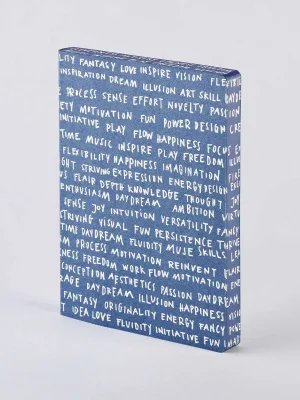 LITY FANTASY LOVE INSPIRE VISION FLEXIBILI
INSPIRATION DREAM ILLUSION ART SKILL DAYDRE
PROCESS SENSE EFFORT NOVELTY PASSION
ETY MOTIVATION FUN POWER DESIGN CRE
INITIATIVE PLAY FLOW HAPPINESS FOCUS
TIME MUSIC INSPIRE PLAY FREEDOM ILLUS
FLEXIBILITY HAPPINESS IMAGINATION
GHT STRIVING EXPRESSION ENERGY DESIGN
US FLAIR DEPTH KNOWLEDGE THOUGHT
ENTHUSIASM DAYDREAM AMBITION
SENSE JOY INTUITION VERSATILITY FANCY
STRIVING VISUAL FUN PERSISTENCE THRIVE
TIME DAYDREAM FLUIDITY MUSE SKILLS
AM PROCESS MOTIVATION REINVENT
NESS FREEDOM WORK FLOW MOTIVATION
CONCEPTION AESTHETICS PASSION DAYDREAM
RAGE DAYDREAM ILLUSION HAPPINESS
FANTASY ORIGINALITY ENERGY FANCY POWE
T IDEA LOVE FLUIDITY INITIATIVE FUN